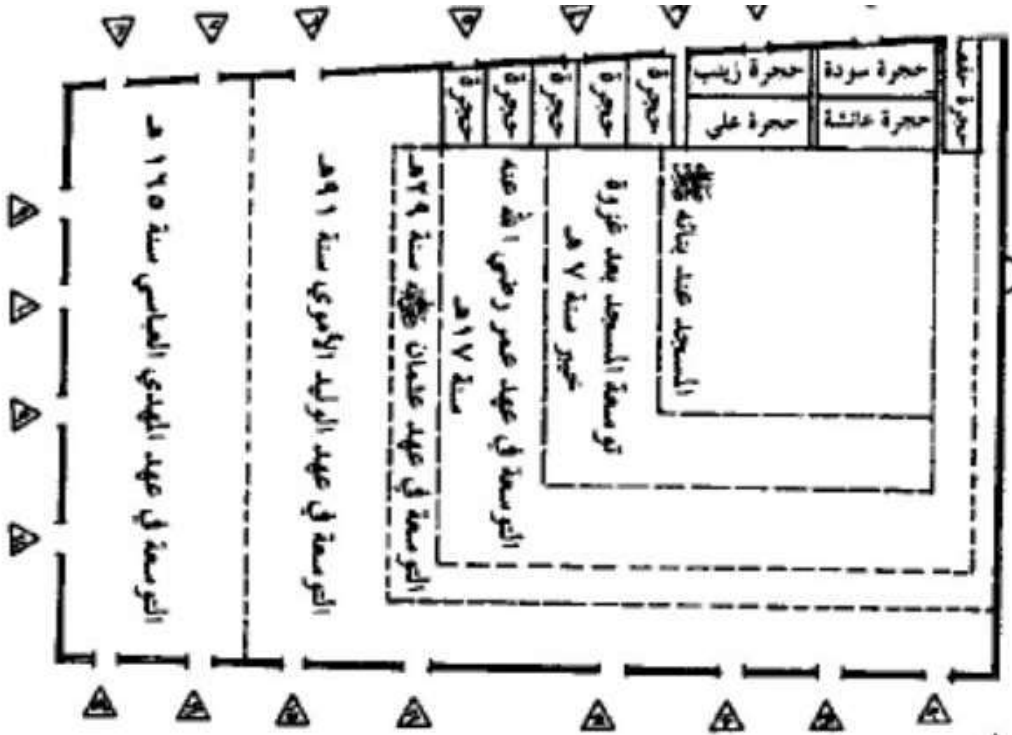 حجرة حفصة
حجرة سودة
حجرة زينب
حجرة عائشة
حجرة علي
حجرة
حجرة
حجرة
حجرة
حجرة
المسجد عند بنائه ﷺ
توسعة المسجد بعد غزوة
خيبر سنة ٧هـ
التوسعة في عهد عمر رضي الله عنه
سنة ١٧هـ
التوسعة في عهد عثمان سنة ٢٩هـ
التوسعة في عهد الوليد الأموي سنة ٩١هـ
التوسعة في عهد المهدي العباسي سنة ١٦٥هـ